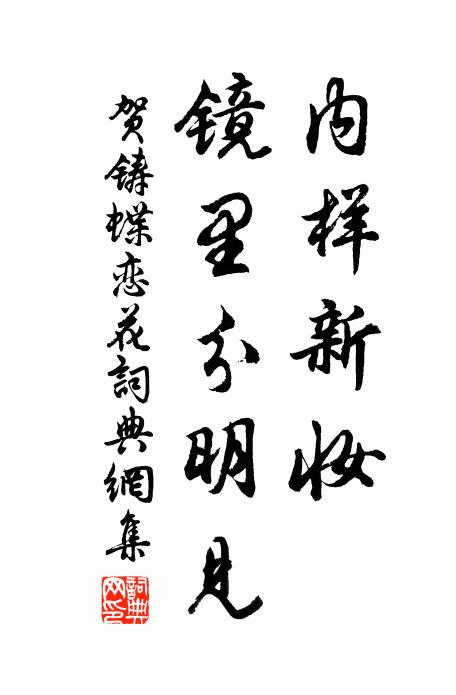 内样新妆
镜里分明见
贺铸蝶恋花詞典網集
詞典网印